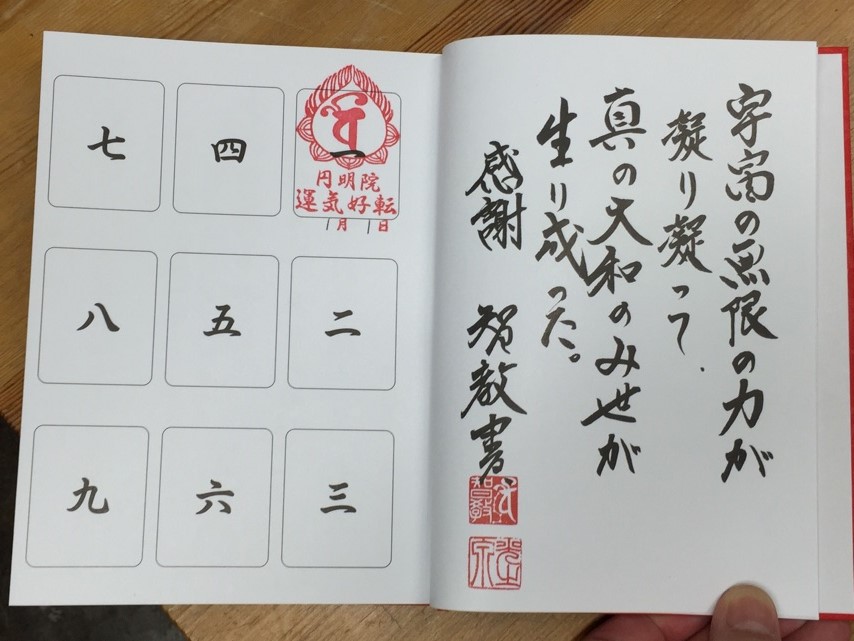 宇宙の無限の力が
凝り凝って、
真の大和のみせが
生り成った。
感謝 智教書
一
円明院
運気好転
1月1日
二
三
四
五
六
七
八
九